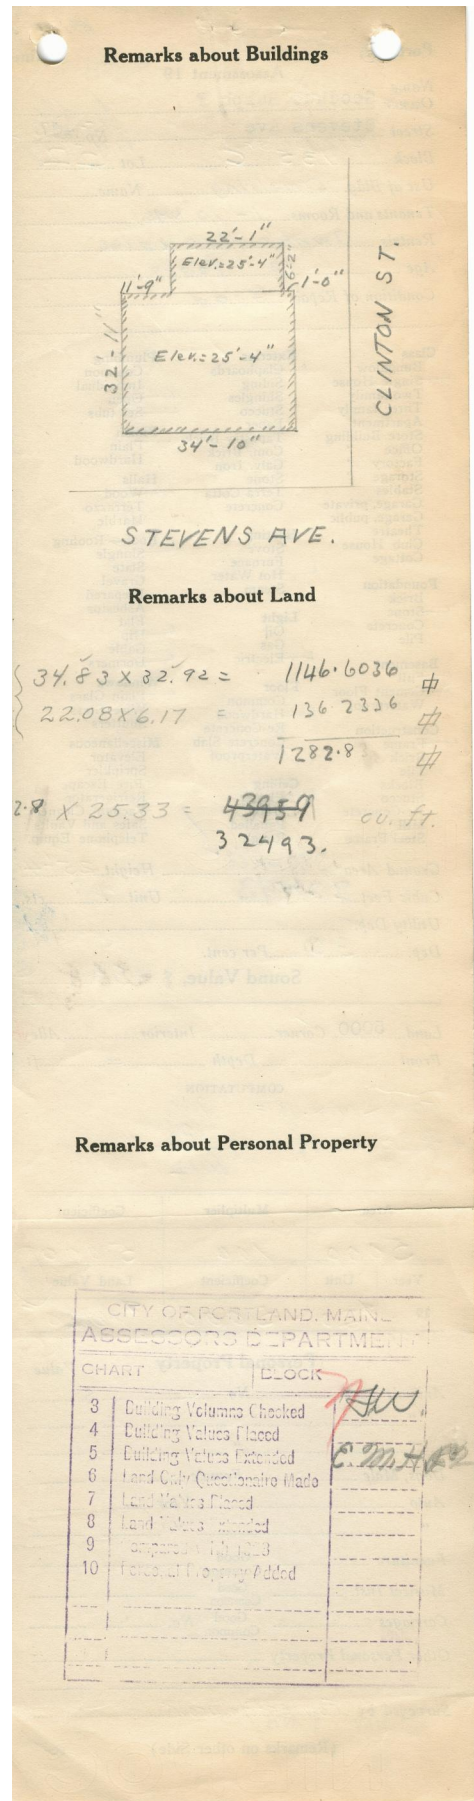 Remarks about Buildings
22'-1"
Elev.=25'-4"
6'-2"
11'-9"
1'-0"
32'-11"
Elev.=25'-4"
34'-10"
CLINTON ST.
STEVENS AVE.
Remarks about Land
34.83 X 32.92 = 1146.6036
22.08 X 6.17 = 136 2336
1282.8
2.8 X 25.33 = 43959 cu. ft.
32493.
Remarks about Personal Property
CITY OF PORTLAND, MAINE
ASSESSORS DEPARTMENT
CHART BLOCK
3 Building Volumns Checked
4 Building Values Placed
5 Building Values Extended
6 Land Only Questionaire Made
7 Land Values Placed
8 Land Values Extended
9 Compared With
10 Personal Property Added